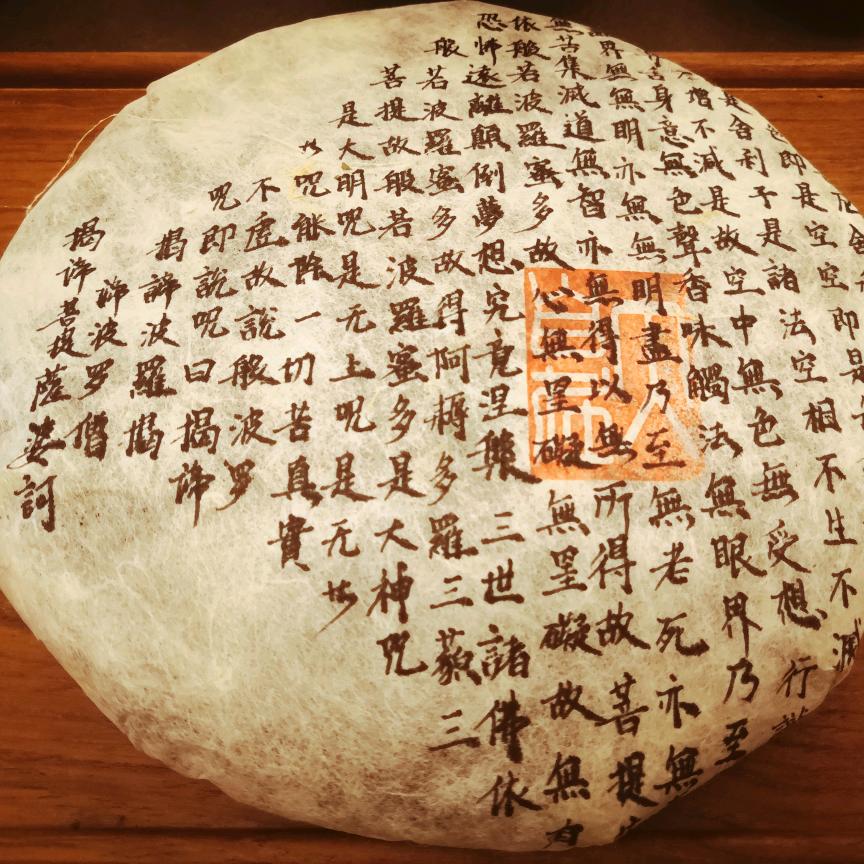 即是空空即是
是舍利子是諸法空相不生不滅
增不減是故空中無色無受想行
舌身意無色聲香味觸法無眼界乃至
界無無明亦無無明盡乃至無老死亦無
無苦集滅道無智亦無得以無所得故菩提
依般若波羅蜜多故心無罣礙無罣礙故無有
恐怖遠離顛倒夢想究竟涅槃三世諸佛依
般若波羅蜜多故得阿耨多羅三藐三
菩提故般若波羅蜜多是大神咒
是大明呪是无上呪是无
呪能除一切苦真實
不虛故說般波罗
呪即說呪曰揭諦
揭諦波羅揭
諦波罗僧
揭諦菩提薩婆訶